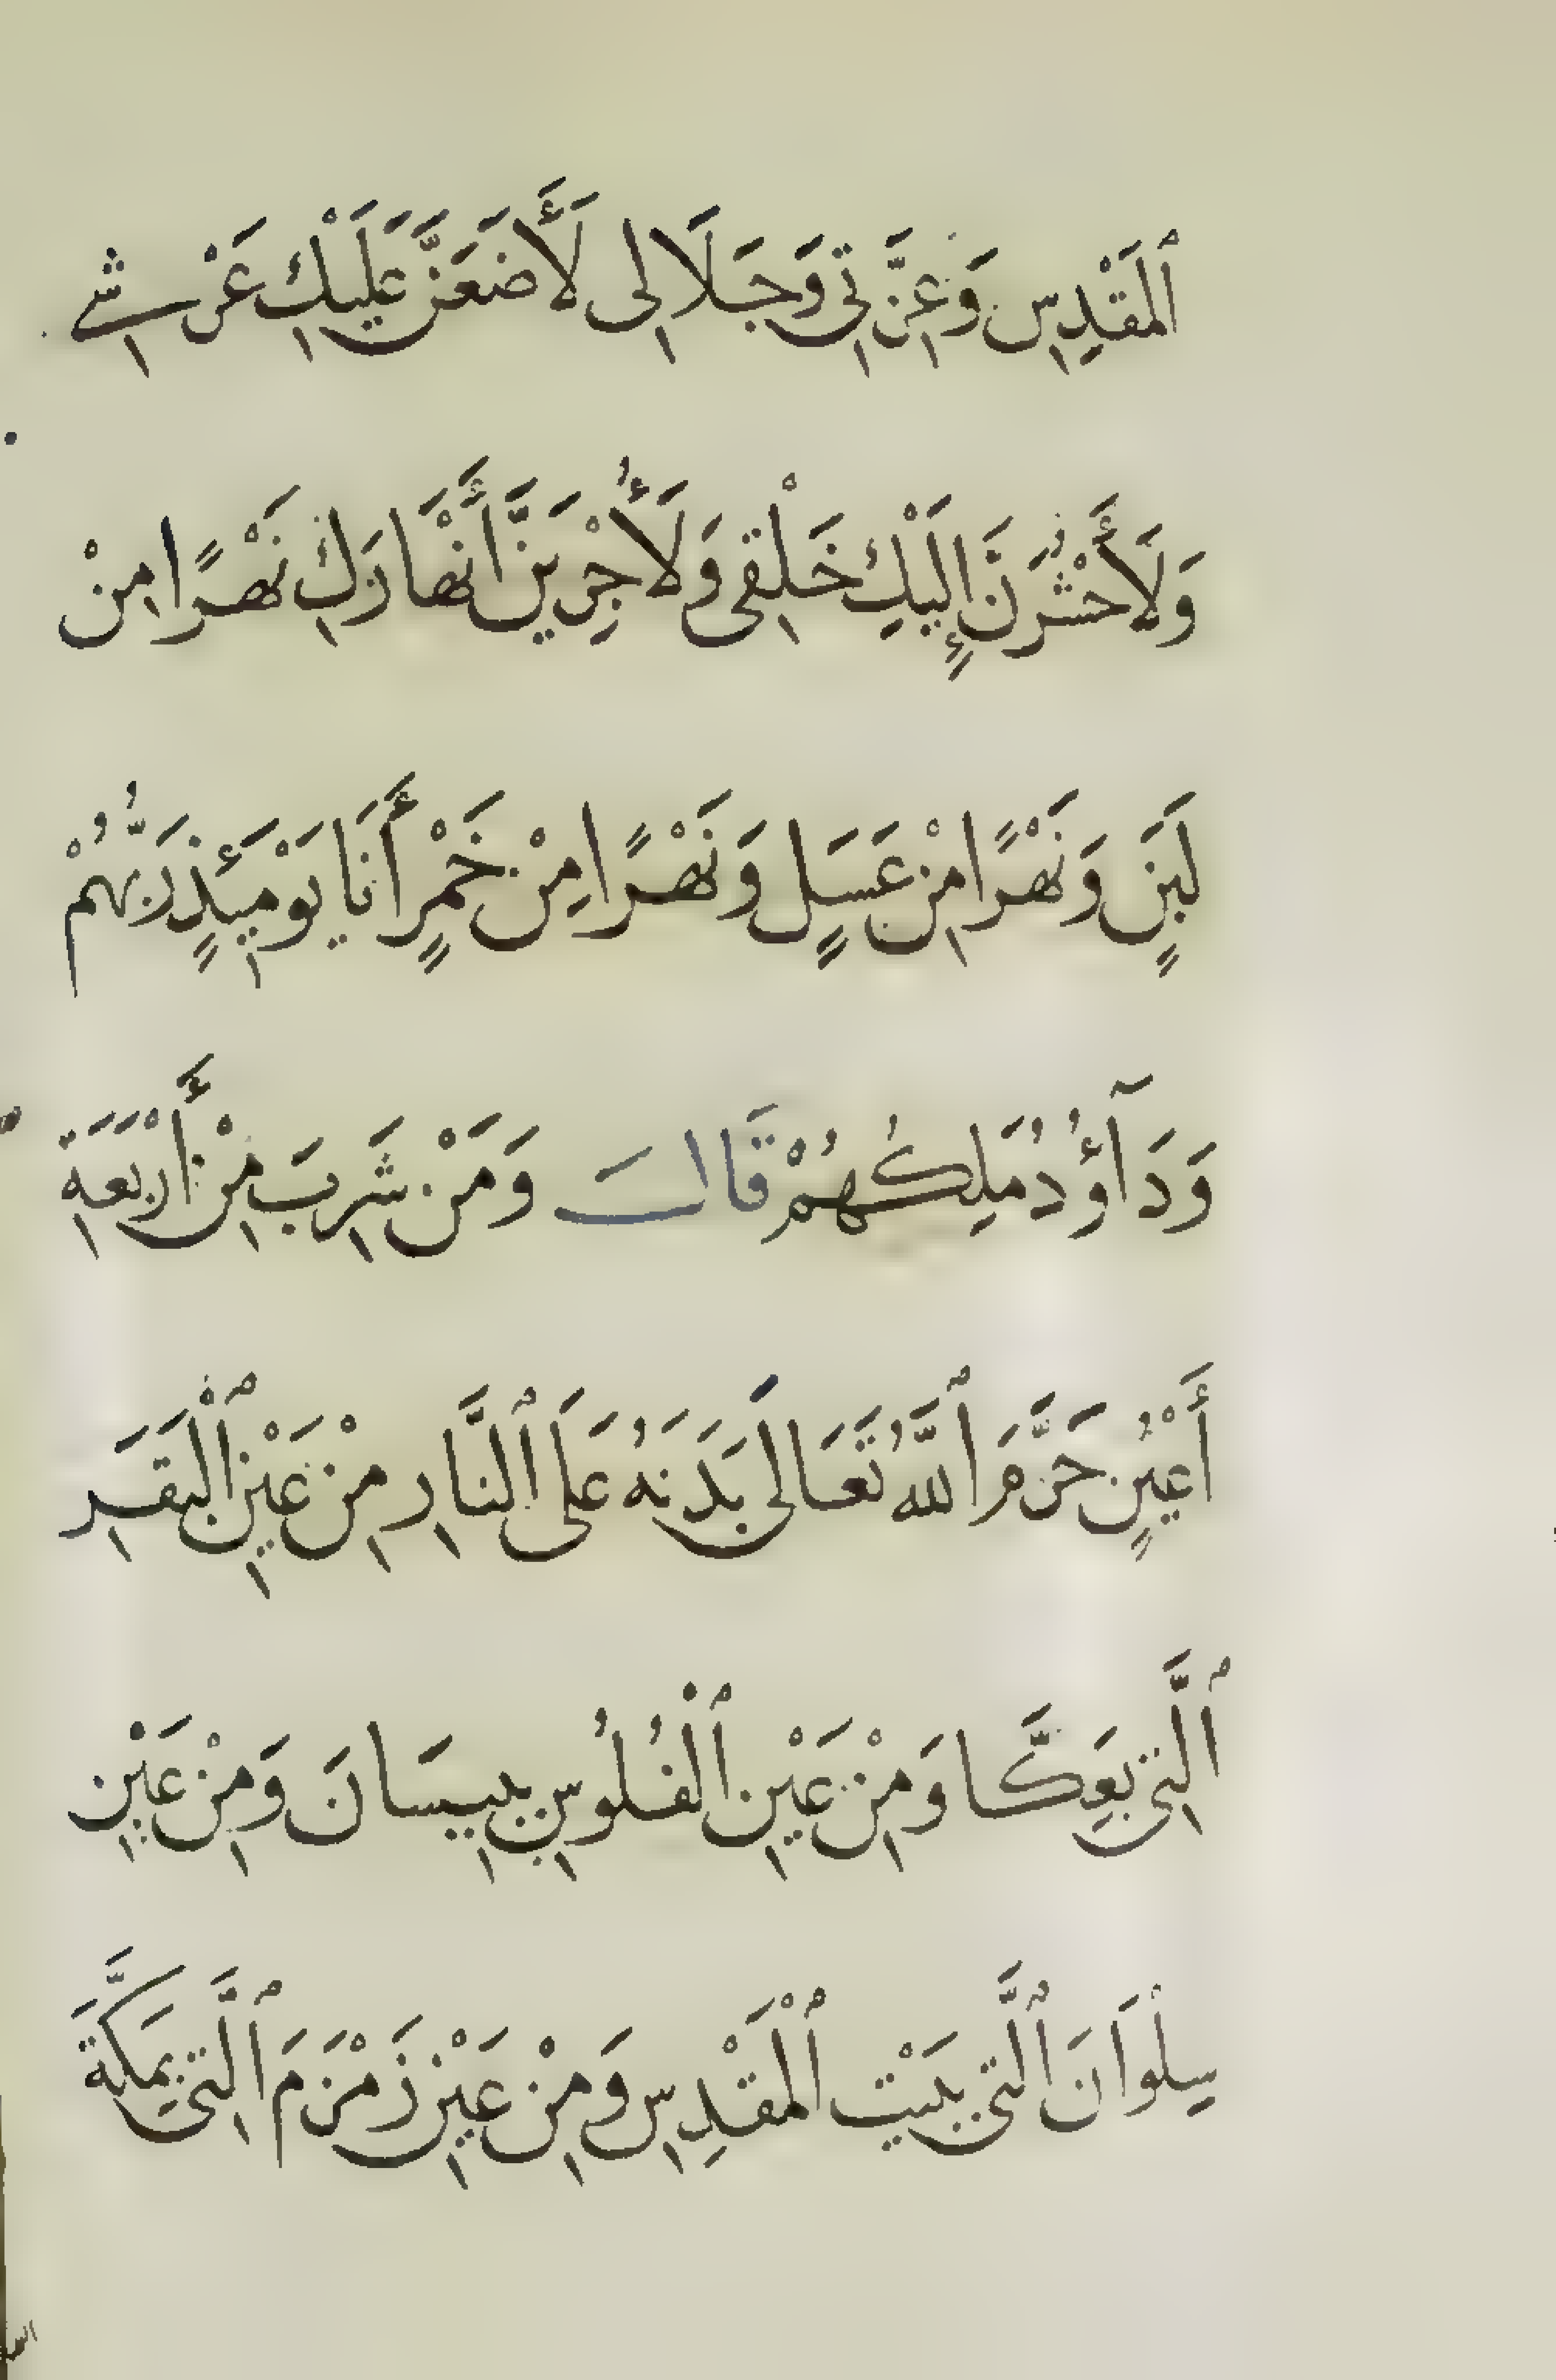 ٱلْمَقْدِسِ وَعِزَّتِي وَجَلَالِى لَأَضَعَنَّ عَلَيْكِ عَرْشِي
وَلَأَحْشُرَنَّ إِلَيْكِ خَلْقِى وَلَأُجْرِيَنَّ أَنْهَارَكِ نَهْرًا مِنْ
لَبَنٍ وَنَهْرًا مِنْ عَسَلٍ وَنَهْرًا مِنْ خَمْرٍ أَنَا يَوْمَئِذٍ رَبُّهُمْ
وَدَآؤُدُ مَلِكُهُمْ قَالَ وَمَنْ شَرِبَ مِنْ أَرْبَعَةِ
أَعْيُنٍ حَرَّمَ ٱللَّهُ تَعَالَى بَدَنَهُ عَلَى ٱلنَّارِ مِنْ عَيْنِ ٱلْبَقَرِ
ٱلَّتِى بِعَكَّا وَمِنْ عَيْنِ ٱلْفُلُوسِ بِبِيسَانَ وَمِنْ عَيْنِ
سِلْوَانَ ٱلَّتِى بِبَيْتِ ٱلْمَقْدِسِ وَمِنْ عَيْنِ زَمْزَمَ ٱلَّتِى بِمَكَّةَ